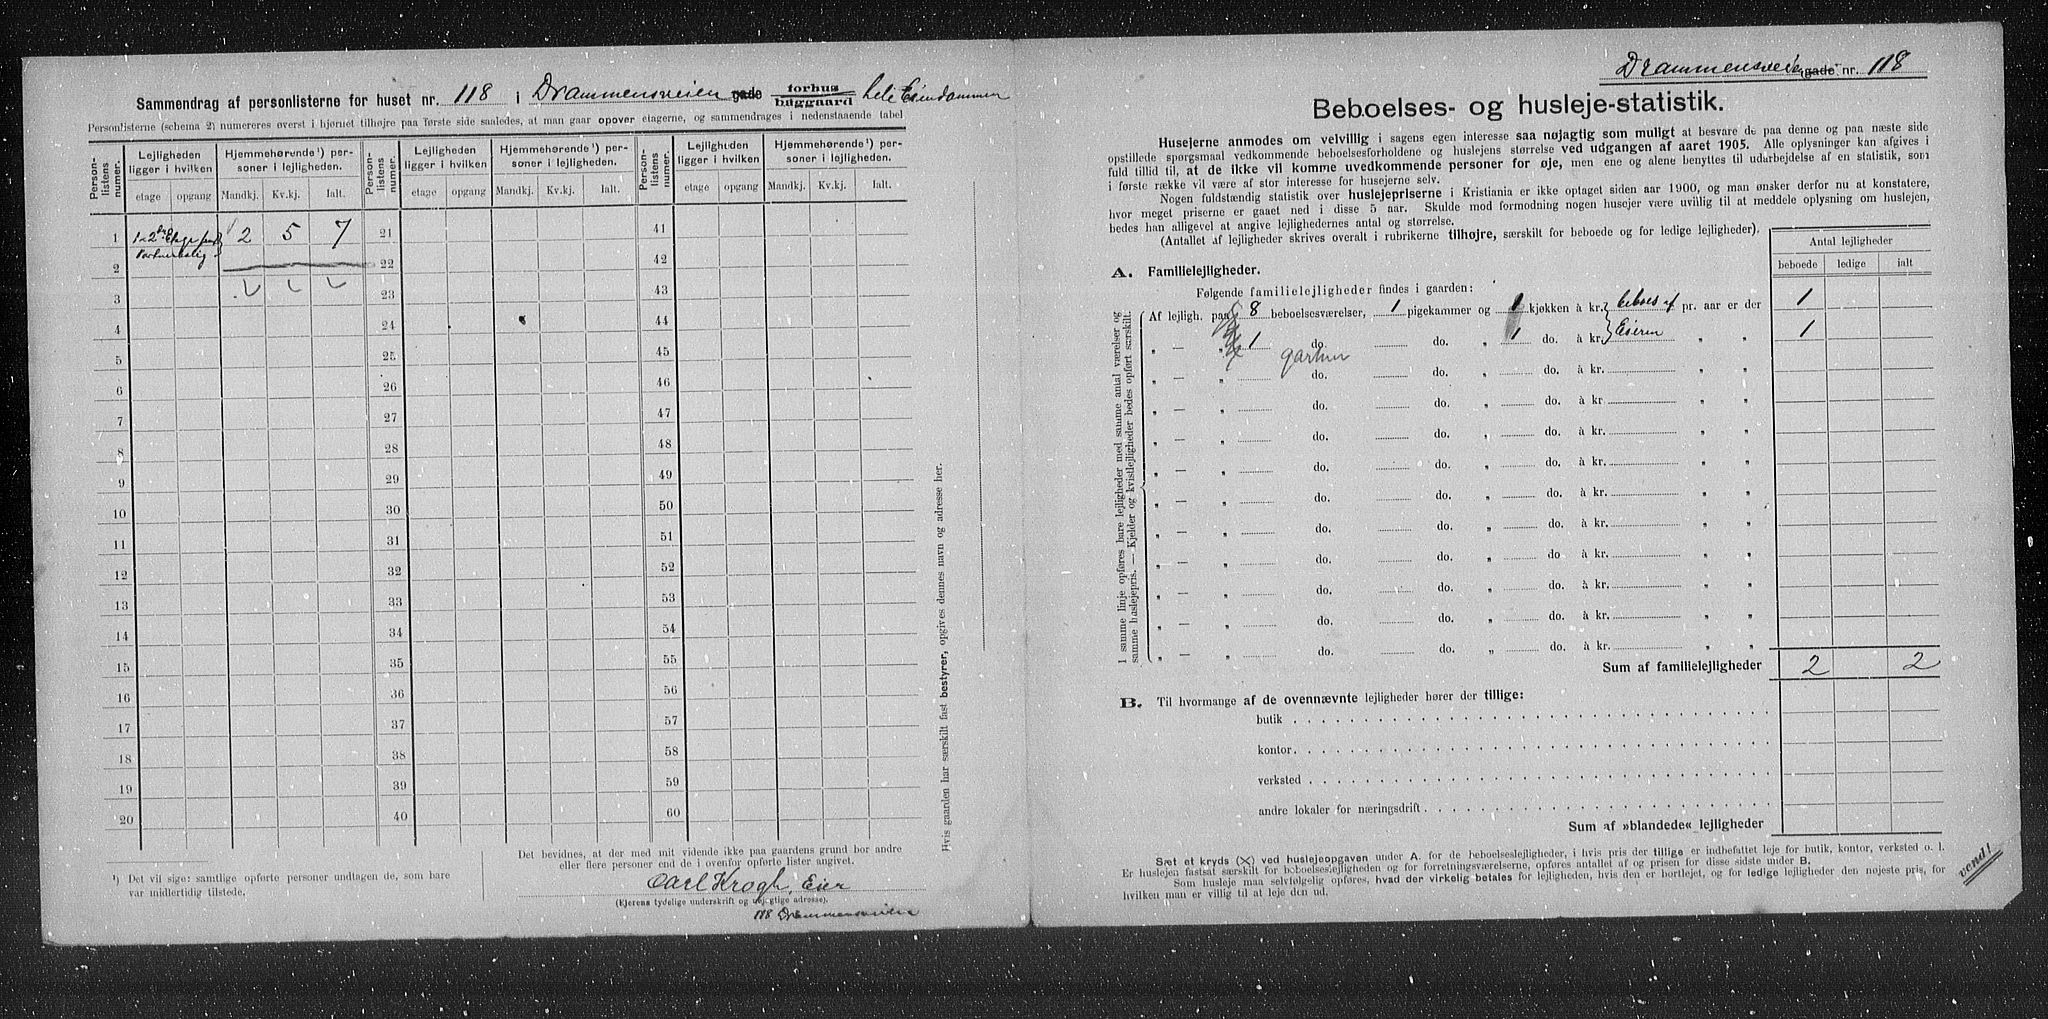 Sammendrag af personlisterne for huset nr. 118 i Drammensveien gade forhus baggaard hele Eiendommen
Personlisterne (schema 2) numereres øverst i hjørnet tilhøjre paa første side saaledes, at man gaar opover etagerne, og sammendrages i nedenstaaende tabel
Person-listens numer. Lejligheden ligger i hvilken Hjemmehørende ¹) personer i lejligheden. Person-listens numer. Lejligheden ligger i hvilken Hjemmehørende ¹) personer i lejligheden. Person-listens numer. Lejligheden ligger i hvilken Hjemmehørende ¹) personer i lejligheden.
etage opgang Mandkj. Kv.kj. Ialt. etage opgang Mandkj. Kv.kj. Ialt. etage opgang Mandkj. Kv.kj. Ialt.
1 1 & 2den Etage samt 2 5 7 21 41
2 Portnerbolig 22 42
3 23 43
4 24 44
5 25 45
6 26 46
7 27 47
8 28 48
9 29 49
10 30 50
11 31 51
12 32 52
13 33 53
14 34 54
15 35 55
16 36 56
17 37 57
18 38 58
19 39 59
20 40 60
Hvis gaarden har særskilt fast bestyrer, opgives dennes navn og adresse her.
¹) Det vil sige: samtlige opførte personer undtagen de, som bare
var midlertidig tilstede.
Det bevidnes, at der med mit vidende ikke paa gaardens grund bor andre
eller flere personer end de i ovenfor opførte lister angivet.
Carl Krogh, Eier
(Ejerens tydelige underskrift og nøjagtige adresse).
118 Drammensveien
Drammensveien gade nr. 118
Beboelses- og husleje-statistik.
Husejerne anmodes om velvillig i sagens egen interesse saa nøjagtig som muligt at besvare de paa denne og paa næste side
opstillede spørgsmaal vedkommende beboelsesforholdene og huslejens størrelse ved udgangen af aaret 1905. Alle oplysninger kan afgives i
fuld tillid til, at de ikke vil komme uvedkommende personer for øje, men ene og alene benyttes til udarbejdelse af en statistik, som
i første række vil være af stor interesse for husejerne selv.
Nogen fuldstændig statistik over huslejepriserne i Kristiania er ikke optaget siden aar 1900, og man ønsker derfor nu at konstatere,
hvor meget priserne er gaaet ned i disse 5 aar. Skulde mod formodning nogen husejer være uvillig til at meddele oplysning om huslejen,
bedes han alligevel at angive lejlighedernes antal og størrelse.
(Antallet af lejligheder skrives overalt i rubrikerne tilhøjre, særskilt for beboede og for ledige lejligheder).
Antal lejligheder
beboede ledige ialt
A. Familielejligheder.
Følgende familielejligheder findes i gaarden:
I samme linje opføres bare lejligheder med samme antal værelser og
samme huslejepris. — Kjelder og kvistlejligheder bedes opført særskilt.
Af lejligh. paa 8 beboelsesværelser, 1 pigekammer og 1 kjøkken à kr. beboes af pr. aar er der 1
„ — „ 1 do. do. „ 1 do. à kr. Eieren „ „ 1
gartner
„ — „ do. do. „ do. à kr. „ „
„ — „ do. do. „ do. à kr. „ „
„ — „ do. do. „ do. à kr. „ „
„ — „ do. do. „ do. à kr. „ „
„ — „ do. do. „ do. à kr. „ „
„ — „ do. do. „ do. à kr. „ „
„ — „ do. do. „ do à kr. „ „
„ — „ do. do. „ do. à kr. „ „
„ — „ do. do. „ do. à kr. „ „
„ — „ do. do. „ do. à kr. „ „
Sum af familielejligheder 2 2
B. Til hvormange af de ovennævnte lejligheder hører der tillige:
butik
kontor
verksted
andre lokaler for næringsdrift
Sum af »blandede« lejligheder
Sæt et kryds (×) ved huslejeopgaven under A. for de beboelseslejligheder, i hvis pris der tillige er indbefattet leje for butik, kontor, verksted o. l.
Er huslejen fastsat særskilt for beboelseslejligheden og for forretningsværelserne, opføres antallet af og prisen for disse sidste under B.
Som husleje maa selvfølgelig opføres, hvad der virkelig betales for lejligheden, hvis den er bortlejet, og for ledige lejligheder den nøjeste pris, for
hvilken man er villig til at leje den ud.
vend!